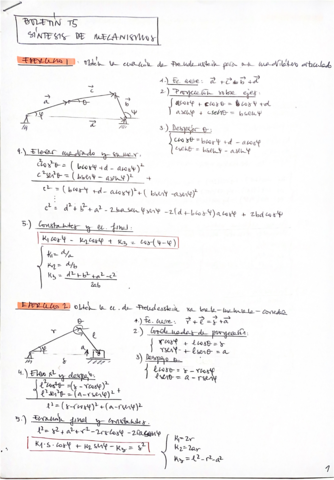 BOLETÍN T5
SÍNTESIS DE MECANISMOS
EJERCICIO 1: Obtén la ecuación de Freudenstein para un cuadrilátero articulado
1.) Ec. cierre: a + c = b + d
2.) Proyección sobre ejes:
a cosφ + c cosθ = b cosψ + d
a senφ + c senθ = b senψ
3.) Despejo θ:
c cosθ = b cosψ + d - a cosφ
c senθ = b senψ - a senφ
4.) Elevar cuadrado y sumar:
c² cos²θ = (b cosψ + d - a cosφ)²
c² sen²θ = (b senψ - a senφ)² +
c² = (b cosψ + d - a cosφ)² + (b senψ - a senφ)²
c² = d² + b² + a² - 2ba senφ senψ - 2(d + b cosψ) a cosφ + 2bd cosψ
5.) Constantes y ec final:
K₁ cosψ - K₂ cosφ + K₃ = cos(φ-ψ)
K₁ = d/a
K₂ = d/b
K₃ = d² + b² + a² - c² / 2ab
EJERCICIO 2: Obtén la ec. de Freudenstein
1.) Ec. cierre: r + l = s + a
2.)
r cosφ + l cosθ = s
r senφ + l senθ = a
3.) Despejo θ
l cosθ = s - r cosφ
l senθ = a - r senφ
4.) Elevo x² y
l² cos²θ = (s - r cosφ)²
l² sen²θ = (a - r senφ)² +
l² = (s - r cosφ)² + (a - r senφ)²
5.) Ecuación final y constantes:
l² = s² + a² + r² - 2rs cosφ - 2ra senφ
K₁·s·cosφ + K₂ senφ - K₃ = s²
K₁ = 2r
K₂ = 2ar
K₃ = l² - r² - a²
1